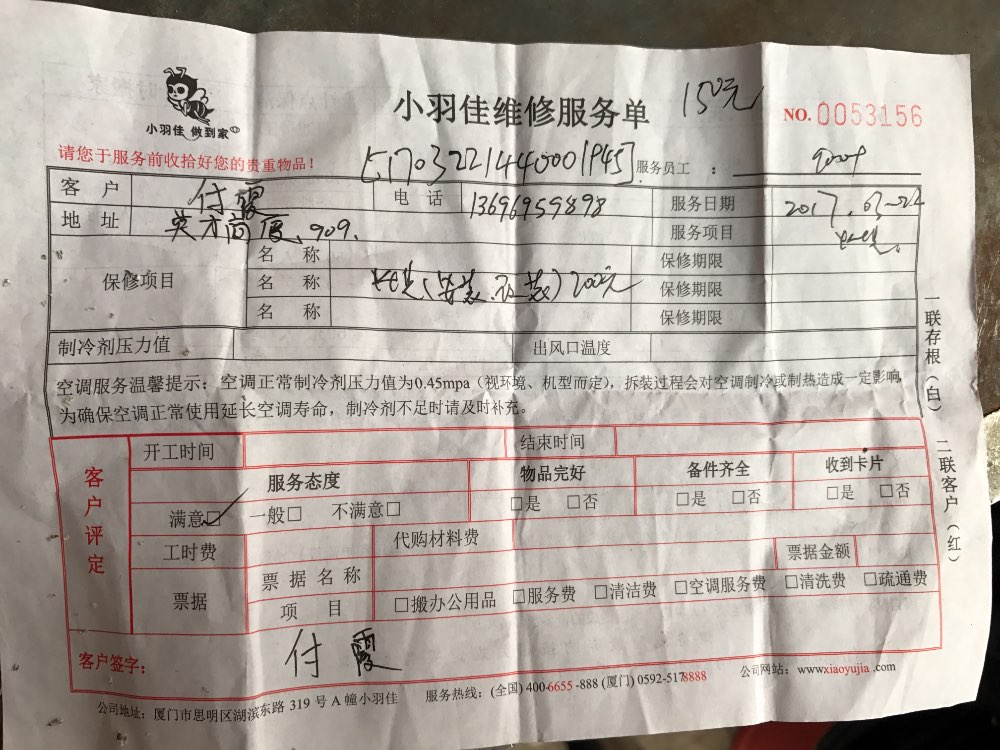 小羽佳 做到家
小羽佳维修服务单 150元 NO.0053156
请您于服务前收拾好您的贵重物品!
[517032214440001945] 服务员工:
客户 付霞 电话 13696959898 服务日期 2017.03-22
地址 英才商厦、909. 服务项目
保修项目
名称 保修期限
名称 200元 保修期限
名称 保修期限
制冷剂压力值 出风口温度
空调服务温馨提示:空调正常制冷剂压力值为0.45mpa(视环境、机型而定),拆装过程会对空调制冷或制热造成一定影响,
为确保空调正常使用延长空调寿命,制冷剂不足时请及时补充。
一联存根(白) 二联客户(红)
客户评定
开工时间 结束时间
服务态度 物品完好 备件齐全 收到卡片
满意□✓ 一般□ 不满意□ □是 □否 □是 □否 □是 □否
工时费 代购材料费
票据 票据名称 票据金额
项目 □搬办公用品 □服务费 □清洁费 □空调服务费 □清洗费 □疏通费
客户签字: 付霞
公司地址:厦门市思明区湖滨东路 319 号 A 幢小羽佳 服务热线:(全国) 400-6655-888 (厦门) 0592-5178888 公司网站:www.xiaoyujia.com